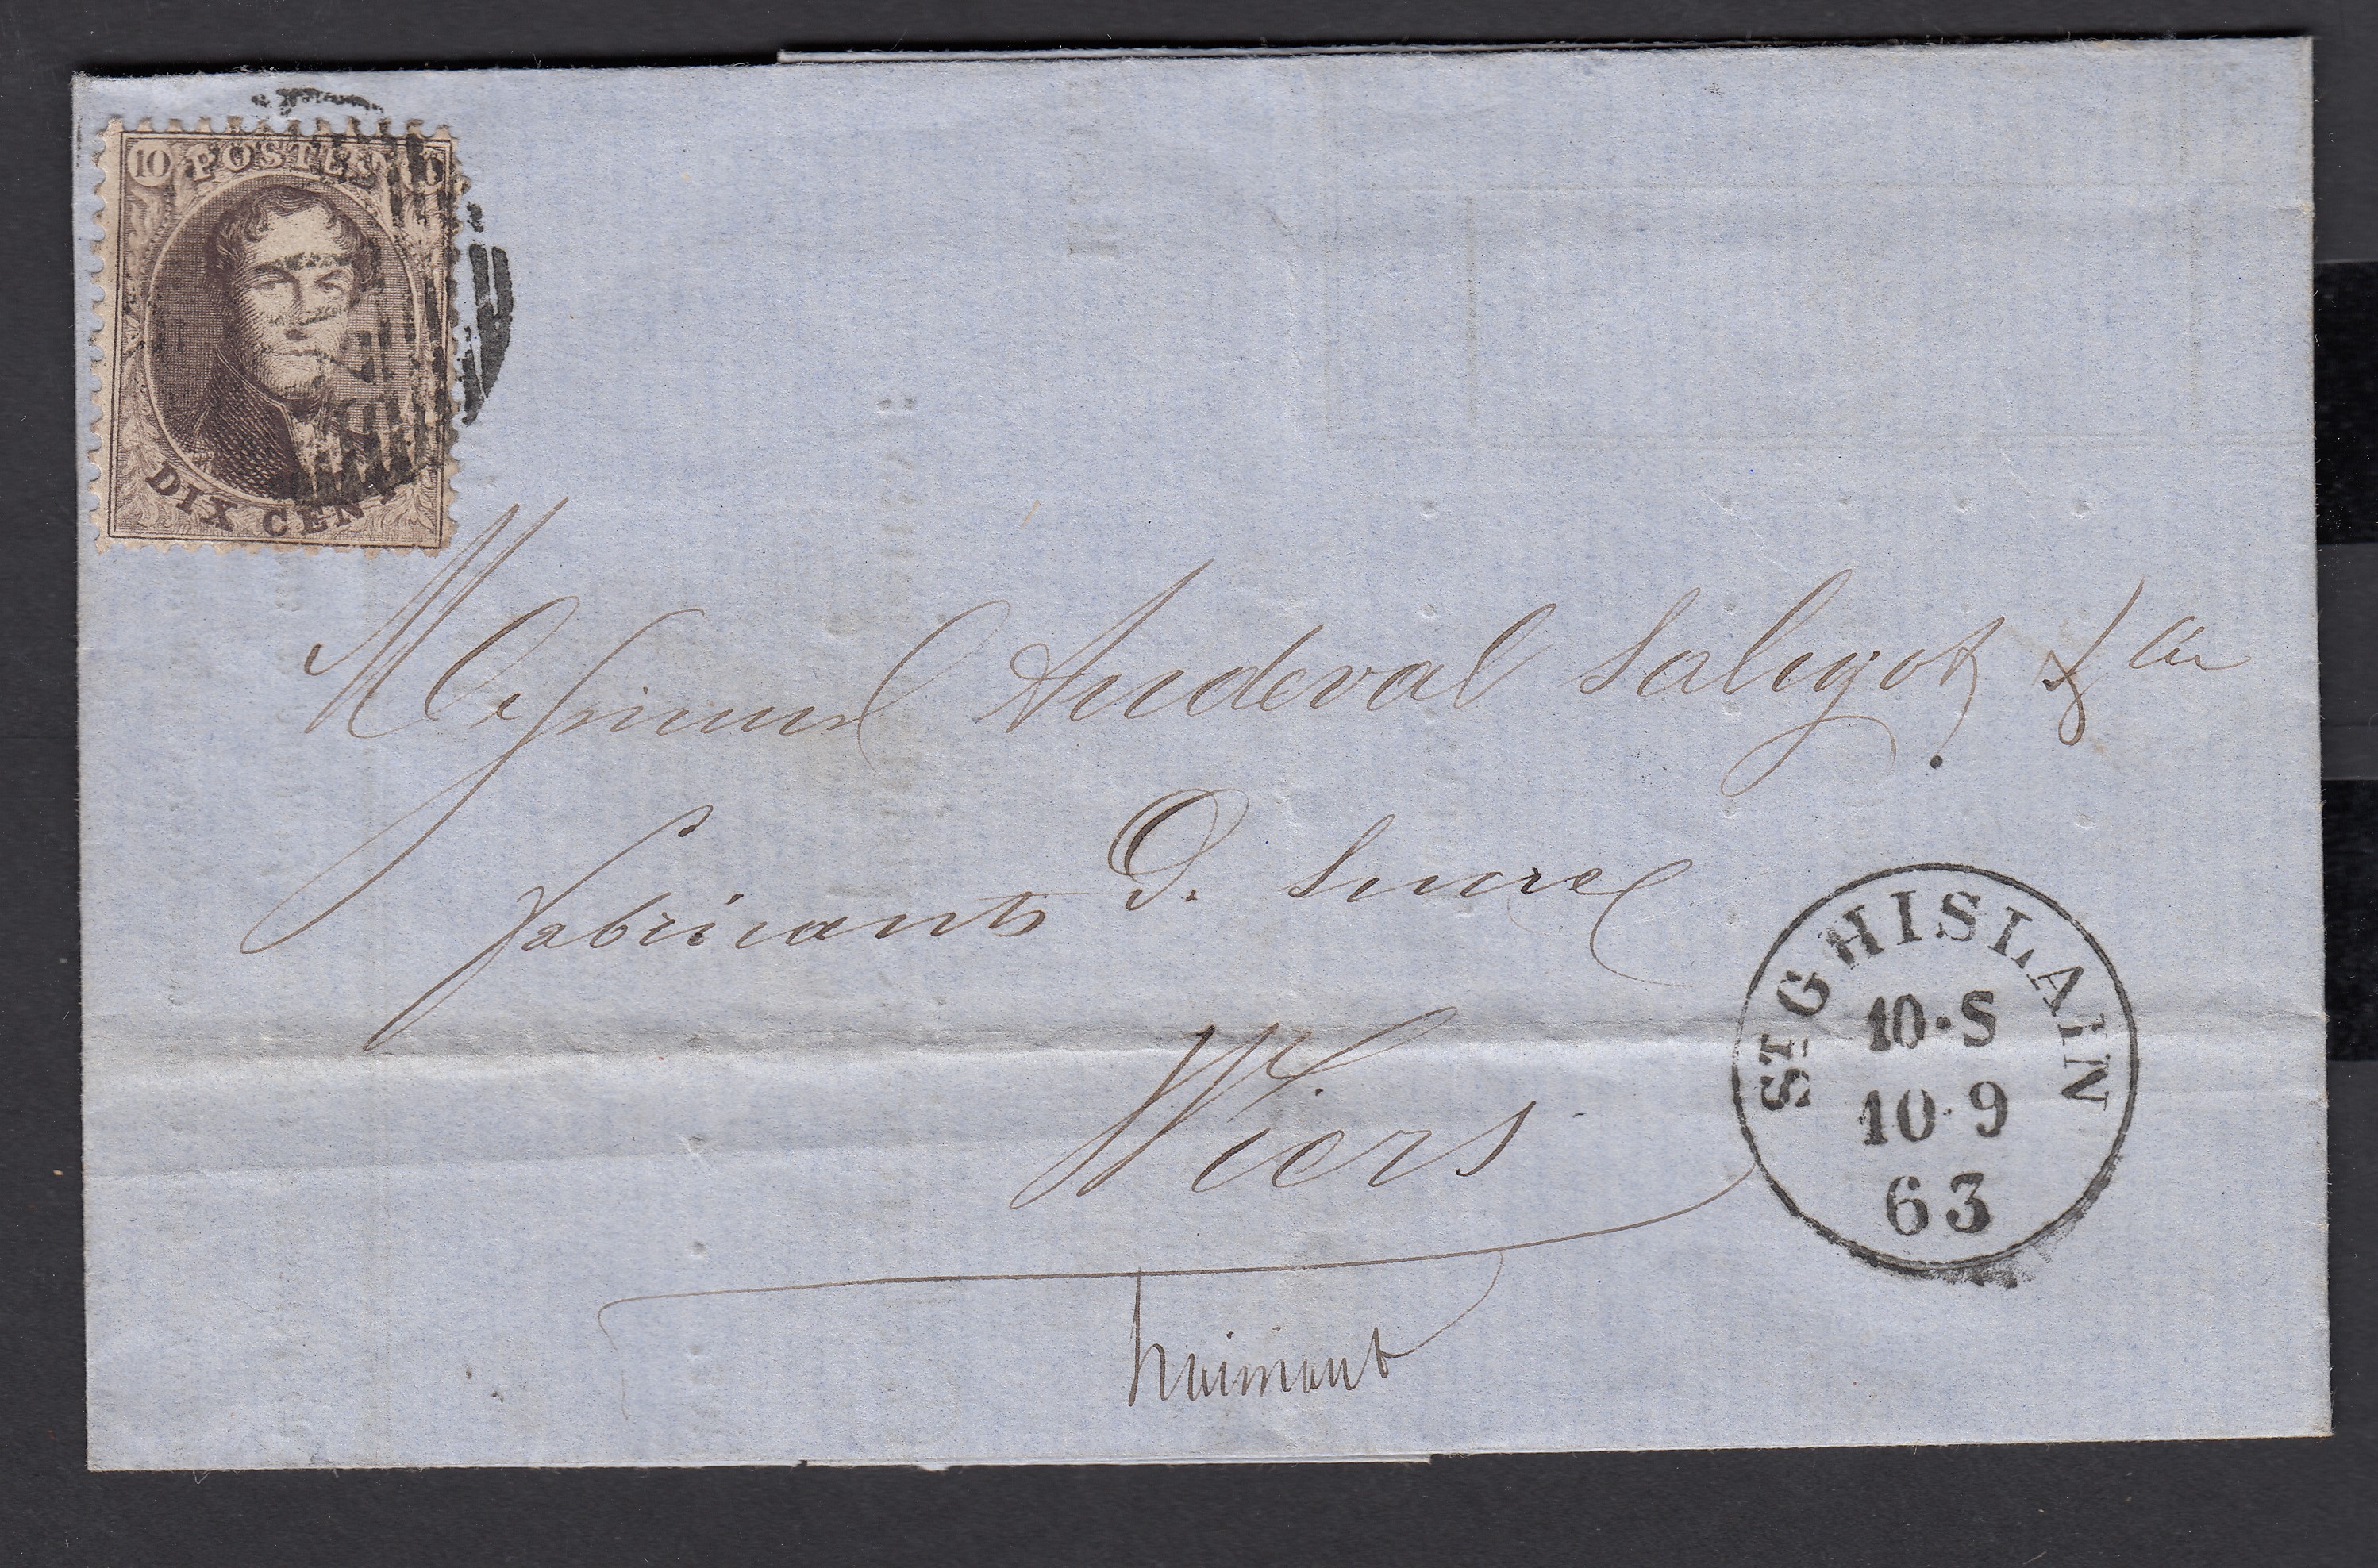 10 POSTES
DIX CEN
Messieurs Andeval Saligot & Cie
fabricants D. Sucre
Wiers
ST GHISLAIN
10·S
10·9
63